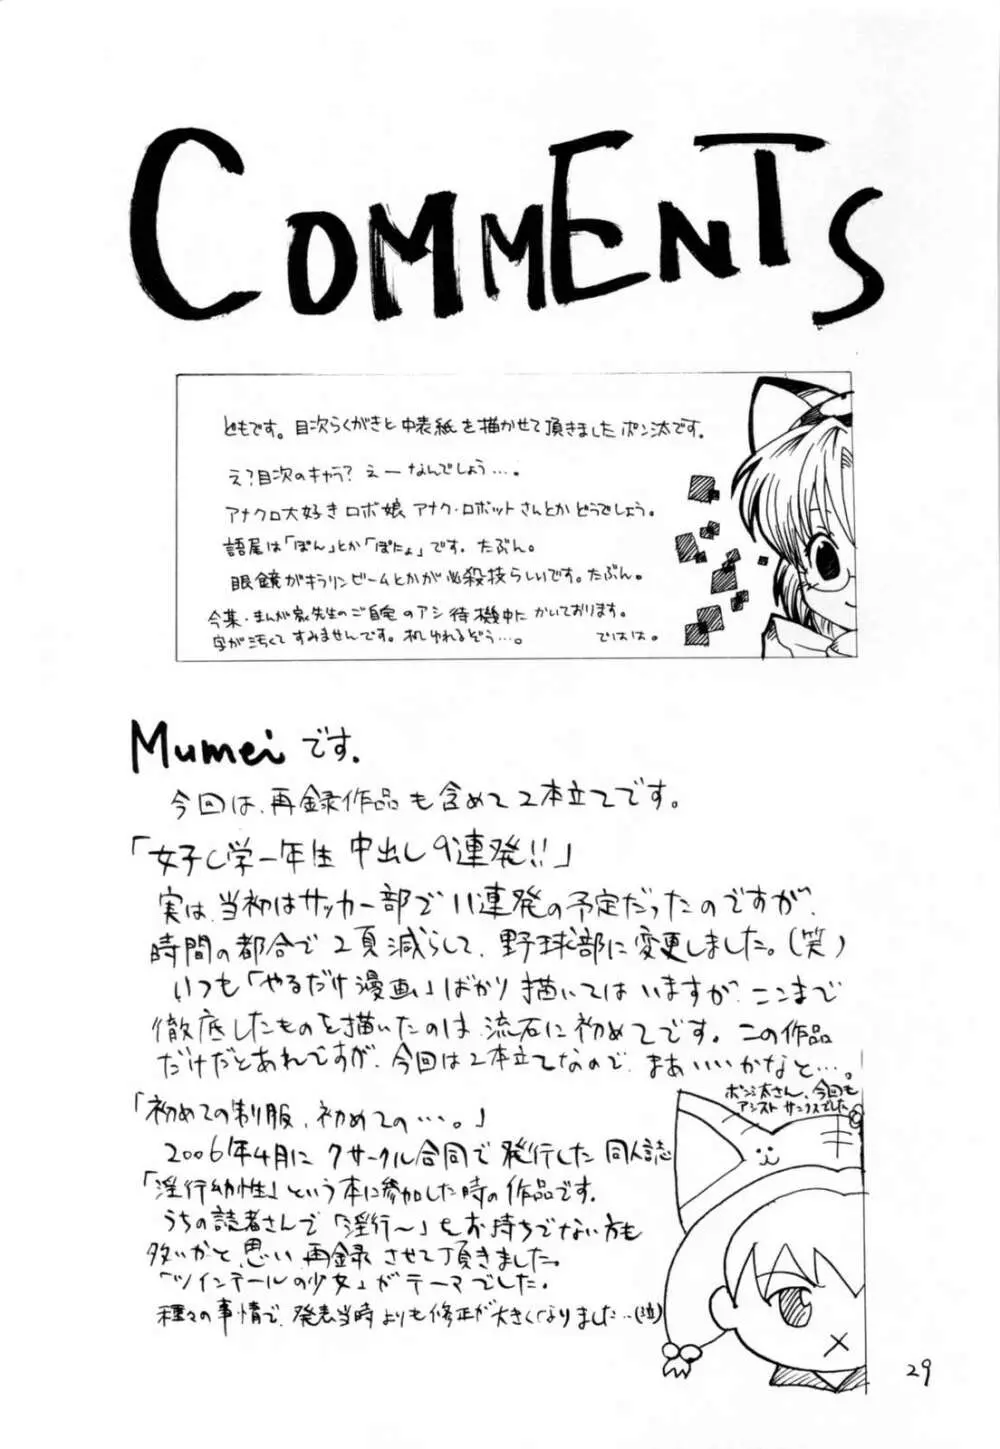 COMMENTS
ども です。目次らくがきと中表紙を描かせて頂きました ポン汰です。
え？目次のキャラ？ えー なんでしょう…。
アナクロ大好き ロボ娘 アナク・ロボットさんとか どうでしょう。
語尾は「ぽん」とか「ぽにょ」です。たぶん。
眼鏡がキラリンビームとかが必殺技らしいです。たぶん。
今某・まんが家先生のご自宅のアシ待機中に かいております。
字が汚くて すみませんです。机ゆれるぞう…。 ではは。
Mumei です.
今回は、再録作品も含めて2本立てです。
「女子C学一年生 中出し9連発!!」
実は、当初はサッカー部で11連発の予定だったのですが、
時間の都合で2頁減らして、野球部に変更しました。(笑)
いつも「やるだけ漫画」ばかり描いてはいますが、ここまで
徹底したものを描いたのは、流石に初めてです。この作品
だけだとあれですが、今回は2本立てなので、まあいいかなと…。
ポン汰さん、今回も
アシスト サンクスでした
「初めての制服、初めての…。」
2006年4月に 7サークル合同で発行した 同人誌
「淫行幼性」という本に参加した時の作品です。
うちの読者さんで「淫行～」をお持ちでない方も
多いかと思い、再録させて頂きました。
「ツインテールの少女」がテーマでした。
種々の事情で、発表当時よりも修正が大きくなりました…(泣)
29